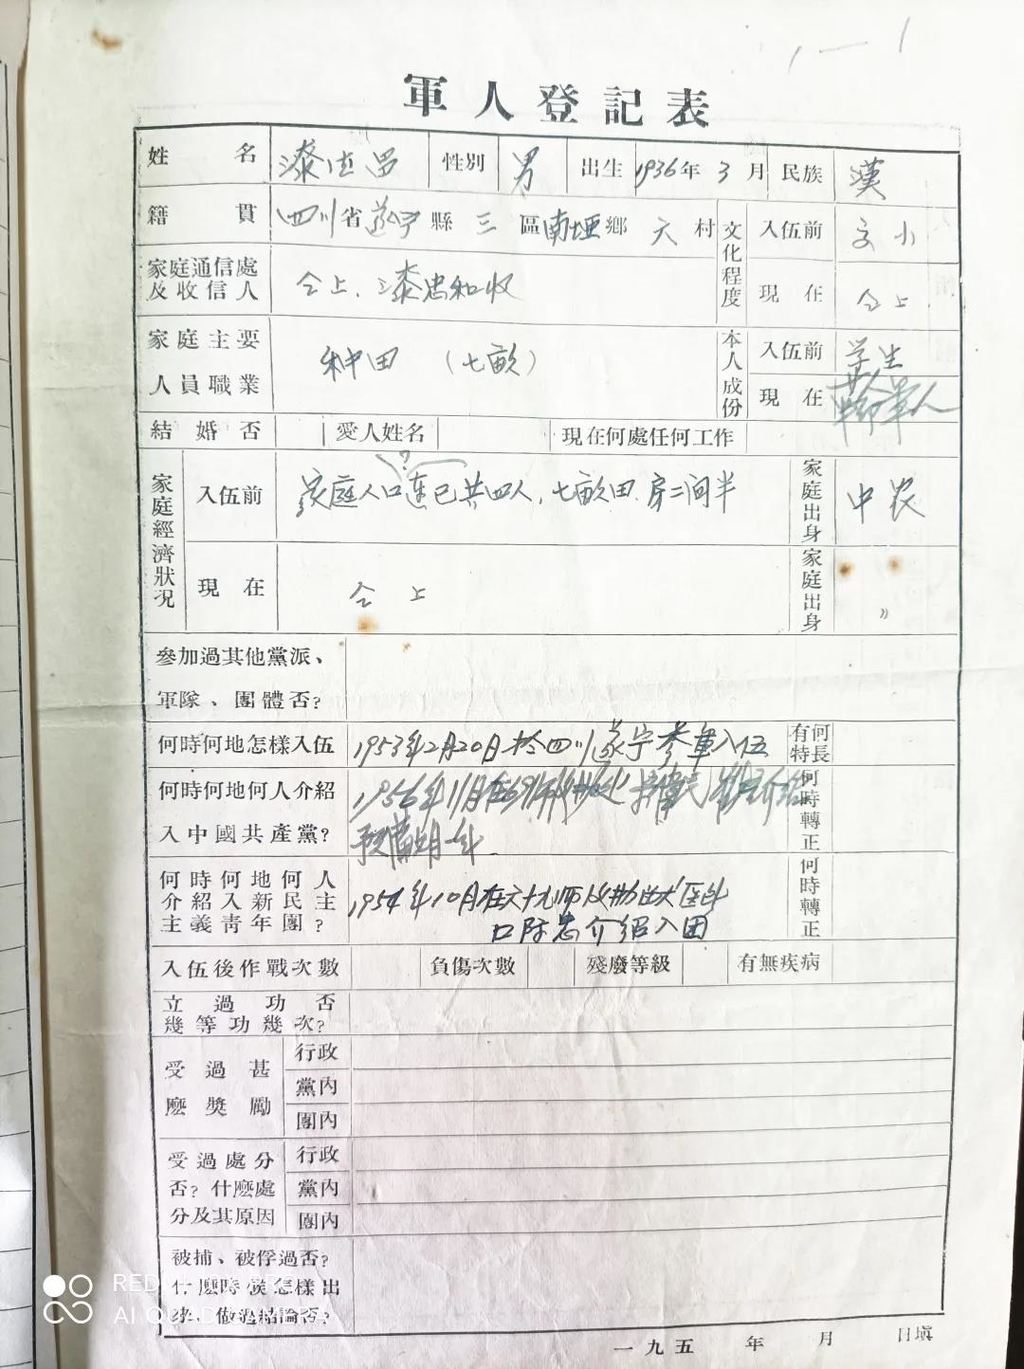 1—1
軍人登記表
姓名 漆 性別 男 出生 1936年 3月 民族 漢
籍貫 四川省遂宁縣 三 區南垭鄉 六 村 文化程度 入伍前 小
家庭通信處及收信人 仝上、漆忠和收 現在 仝上
家庭主要人員職業 种田 (七畝) 本人成份 入伍前 学生
現在 軍人
結婚否 愛人姓名 現在何處任何工作
家庭經濟狀况 入伍前 家庭人口連已共四人,七畝田.房二间半 家庭出身 中农
?
現在 仝上 家庭出身 〃
參加過其他黨派、
軍隊、團體否?
何時何地怎樣入伍 1953年2月20日於四川遂宁參軍入伍 有何特長
何時何地何人介紹 1956年11月在 介紹 何時轉正
入中國共產黨? 預备期一年
何時何地何人
介紹入新民主 1954年10月在六十九师 何時轉正
主義靑年團? 介紹入团
入伍後作戰次數 負傷次數 殘廢等級 有無疾病
立過功否
幾等功幾次?
受過甚麽獎勵 行政
黨內
團內
受過處分否?什麽處分及其原因 行政
黨內
團內
被捕、被俘過否?
什麽時候怎樣出
來、做過結論否?
一九五 年 月 日塡